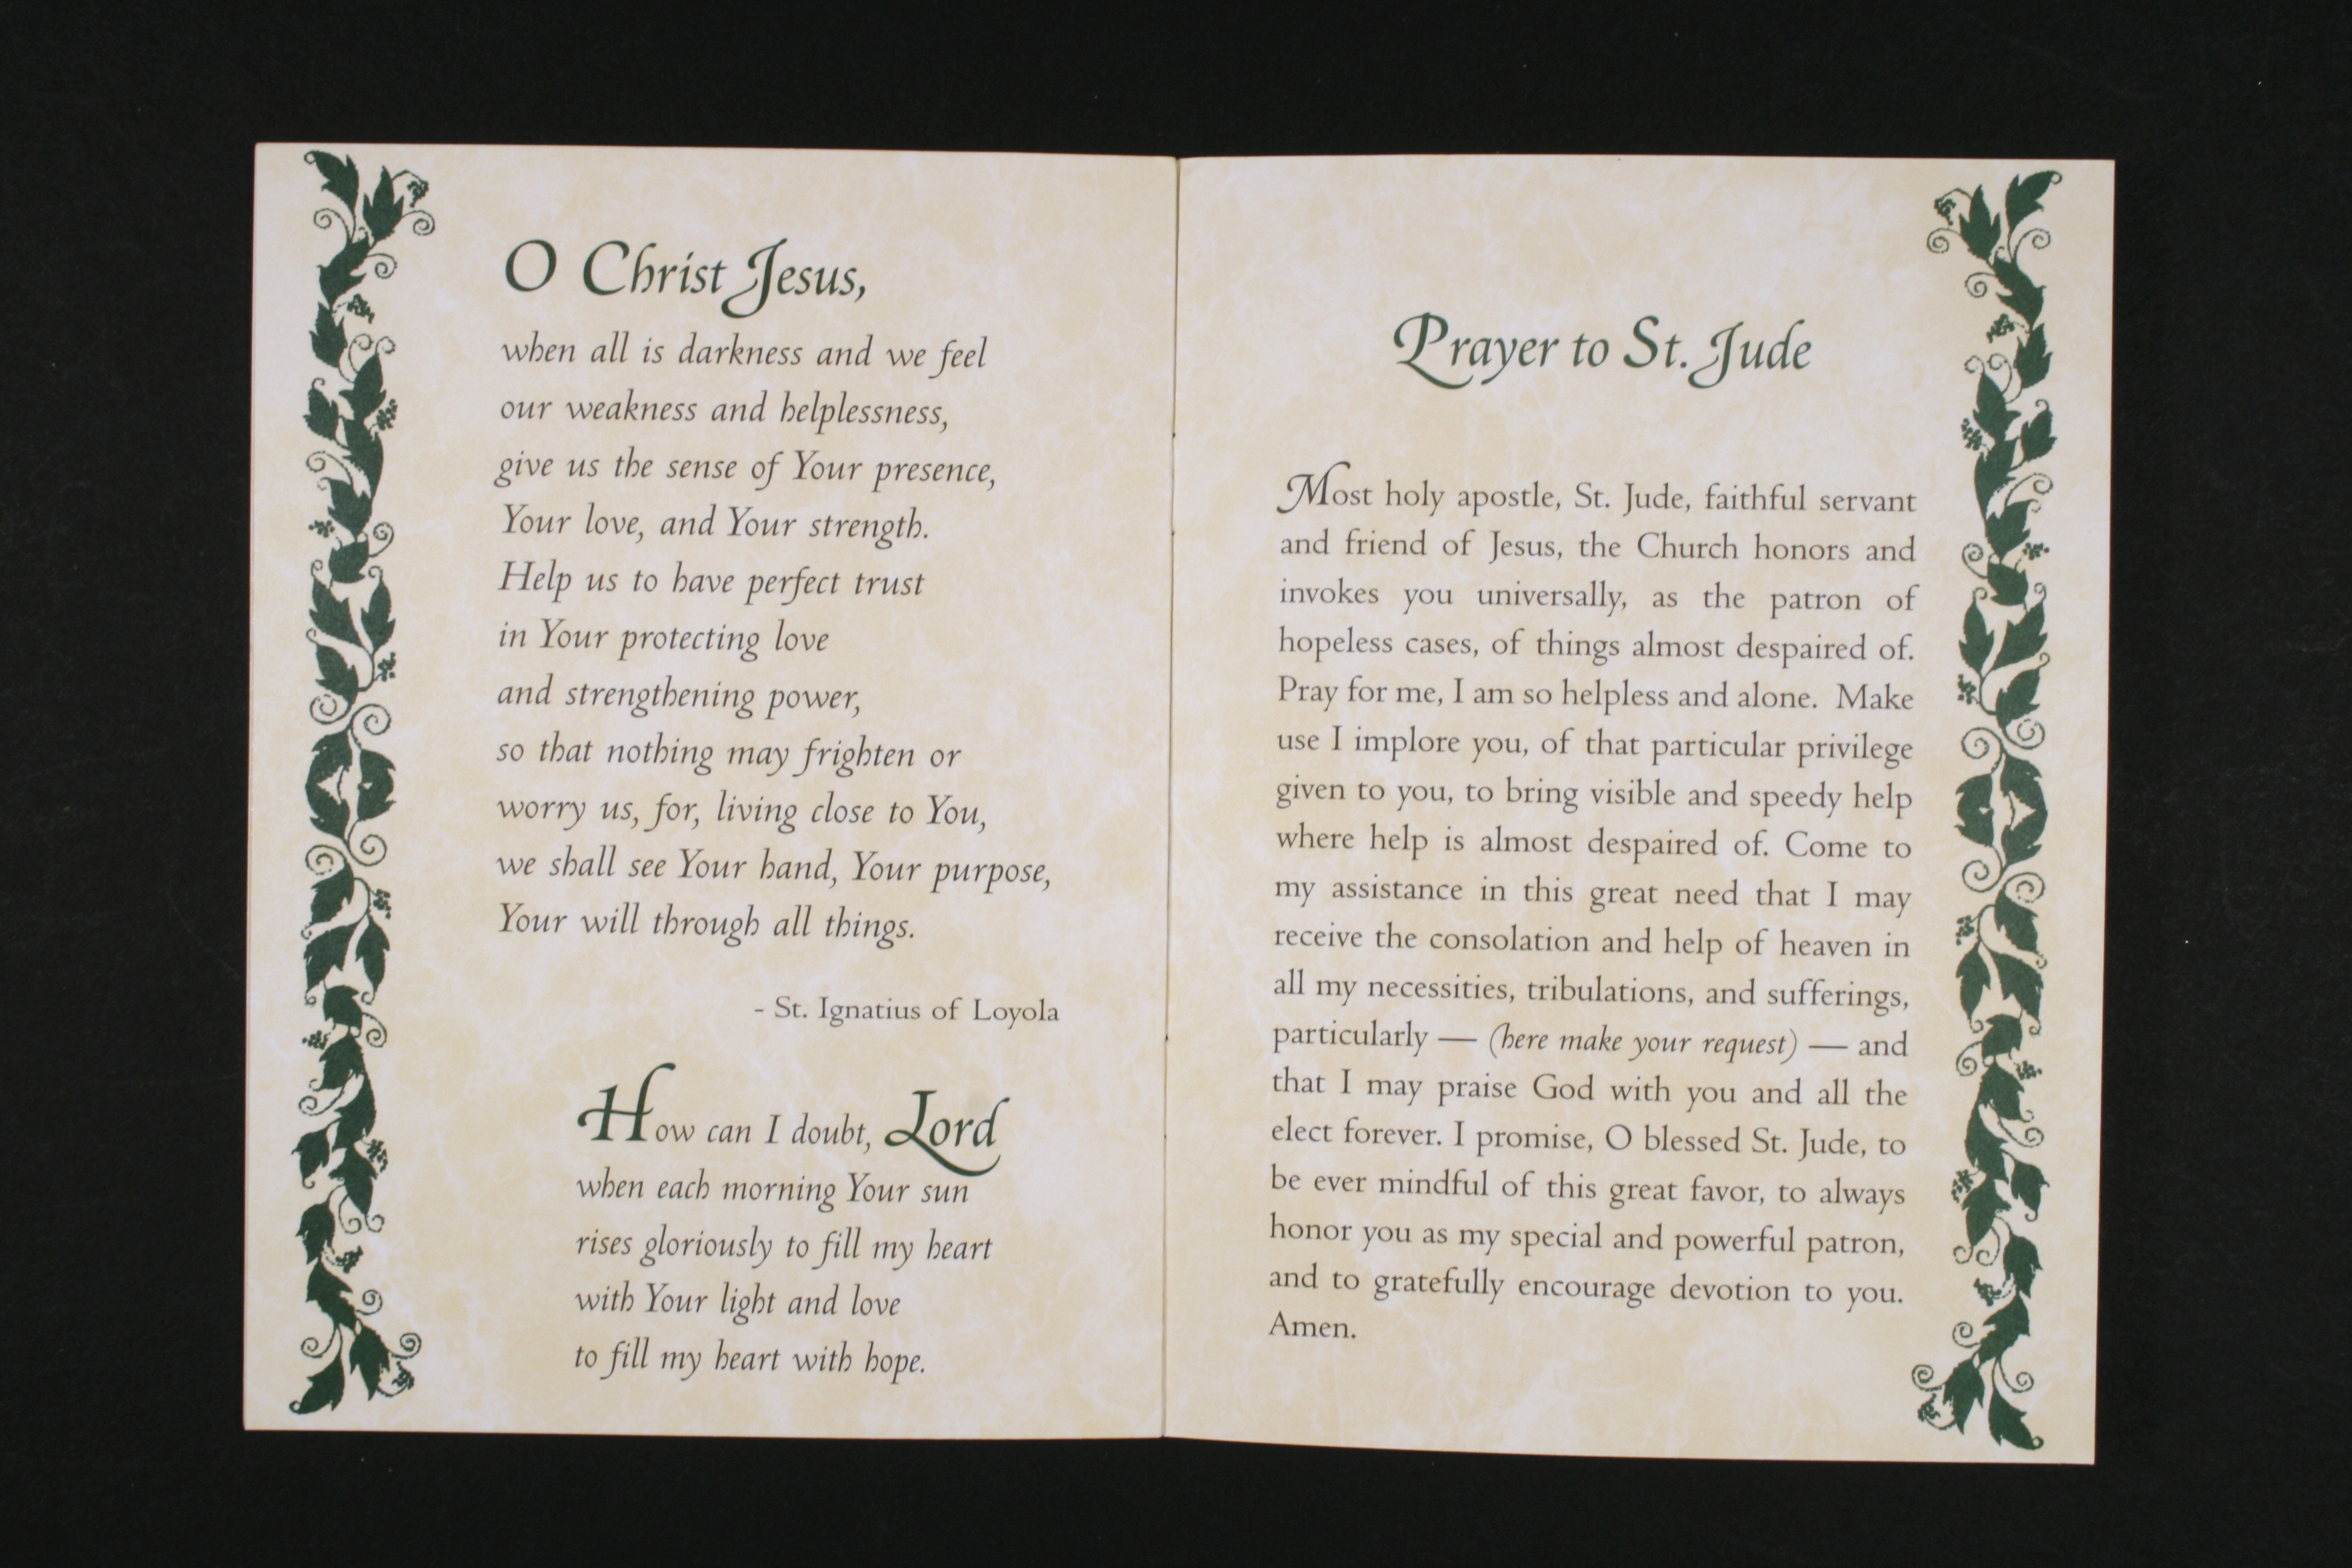 O Christ Jesus,
when all is darkness and we feel
our weakness and helplessness,
give us the sense of Your presence,
Your love, and Your strength.
Help us to have perfect trust
in Your protecting love
and strengthening power,
so that nothing may frighten or
worry us, for, living close to You,
we shall see Your hand, Your purpose,
Your will through all things.
- St. Ignatius of Loyola
How can I doubt, Lord
when each morning Your sun
rises gloriously to fill my heart
with Your light and love
to fill my heart with hope.
Prayer to St. Jude
Most holy apostle, St. Jude, faithful servant
and friend of Jesus, the Church honors and
invokes you universally, as the patron of
hopeless cases, of things almost despaired of.
Pray for me, I am so helpless and alone. Make
use I implore you, of that particular privilege
given to you, to bring visible and speedy help
where help is almost despaired of. Come to
my assistance in this great need that I may
receive the consolation and help of heaven in
all my necessities, tribulations, and sufferings,
particularly — (here make your request) — and
that I may praise God with you and all the
elect forever. I promise, O blessed St. Jude, to
be ever mindful of this great favor, to always
honor you as my special and powerful patron,
and to gratefully encourage devotion to you.
Amen.